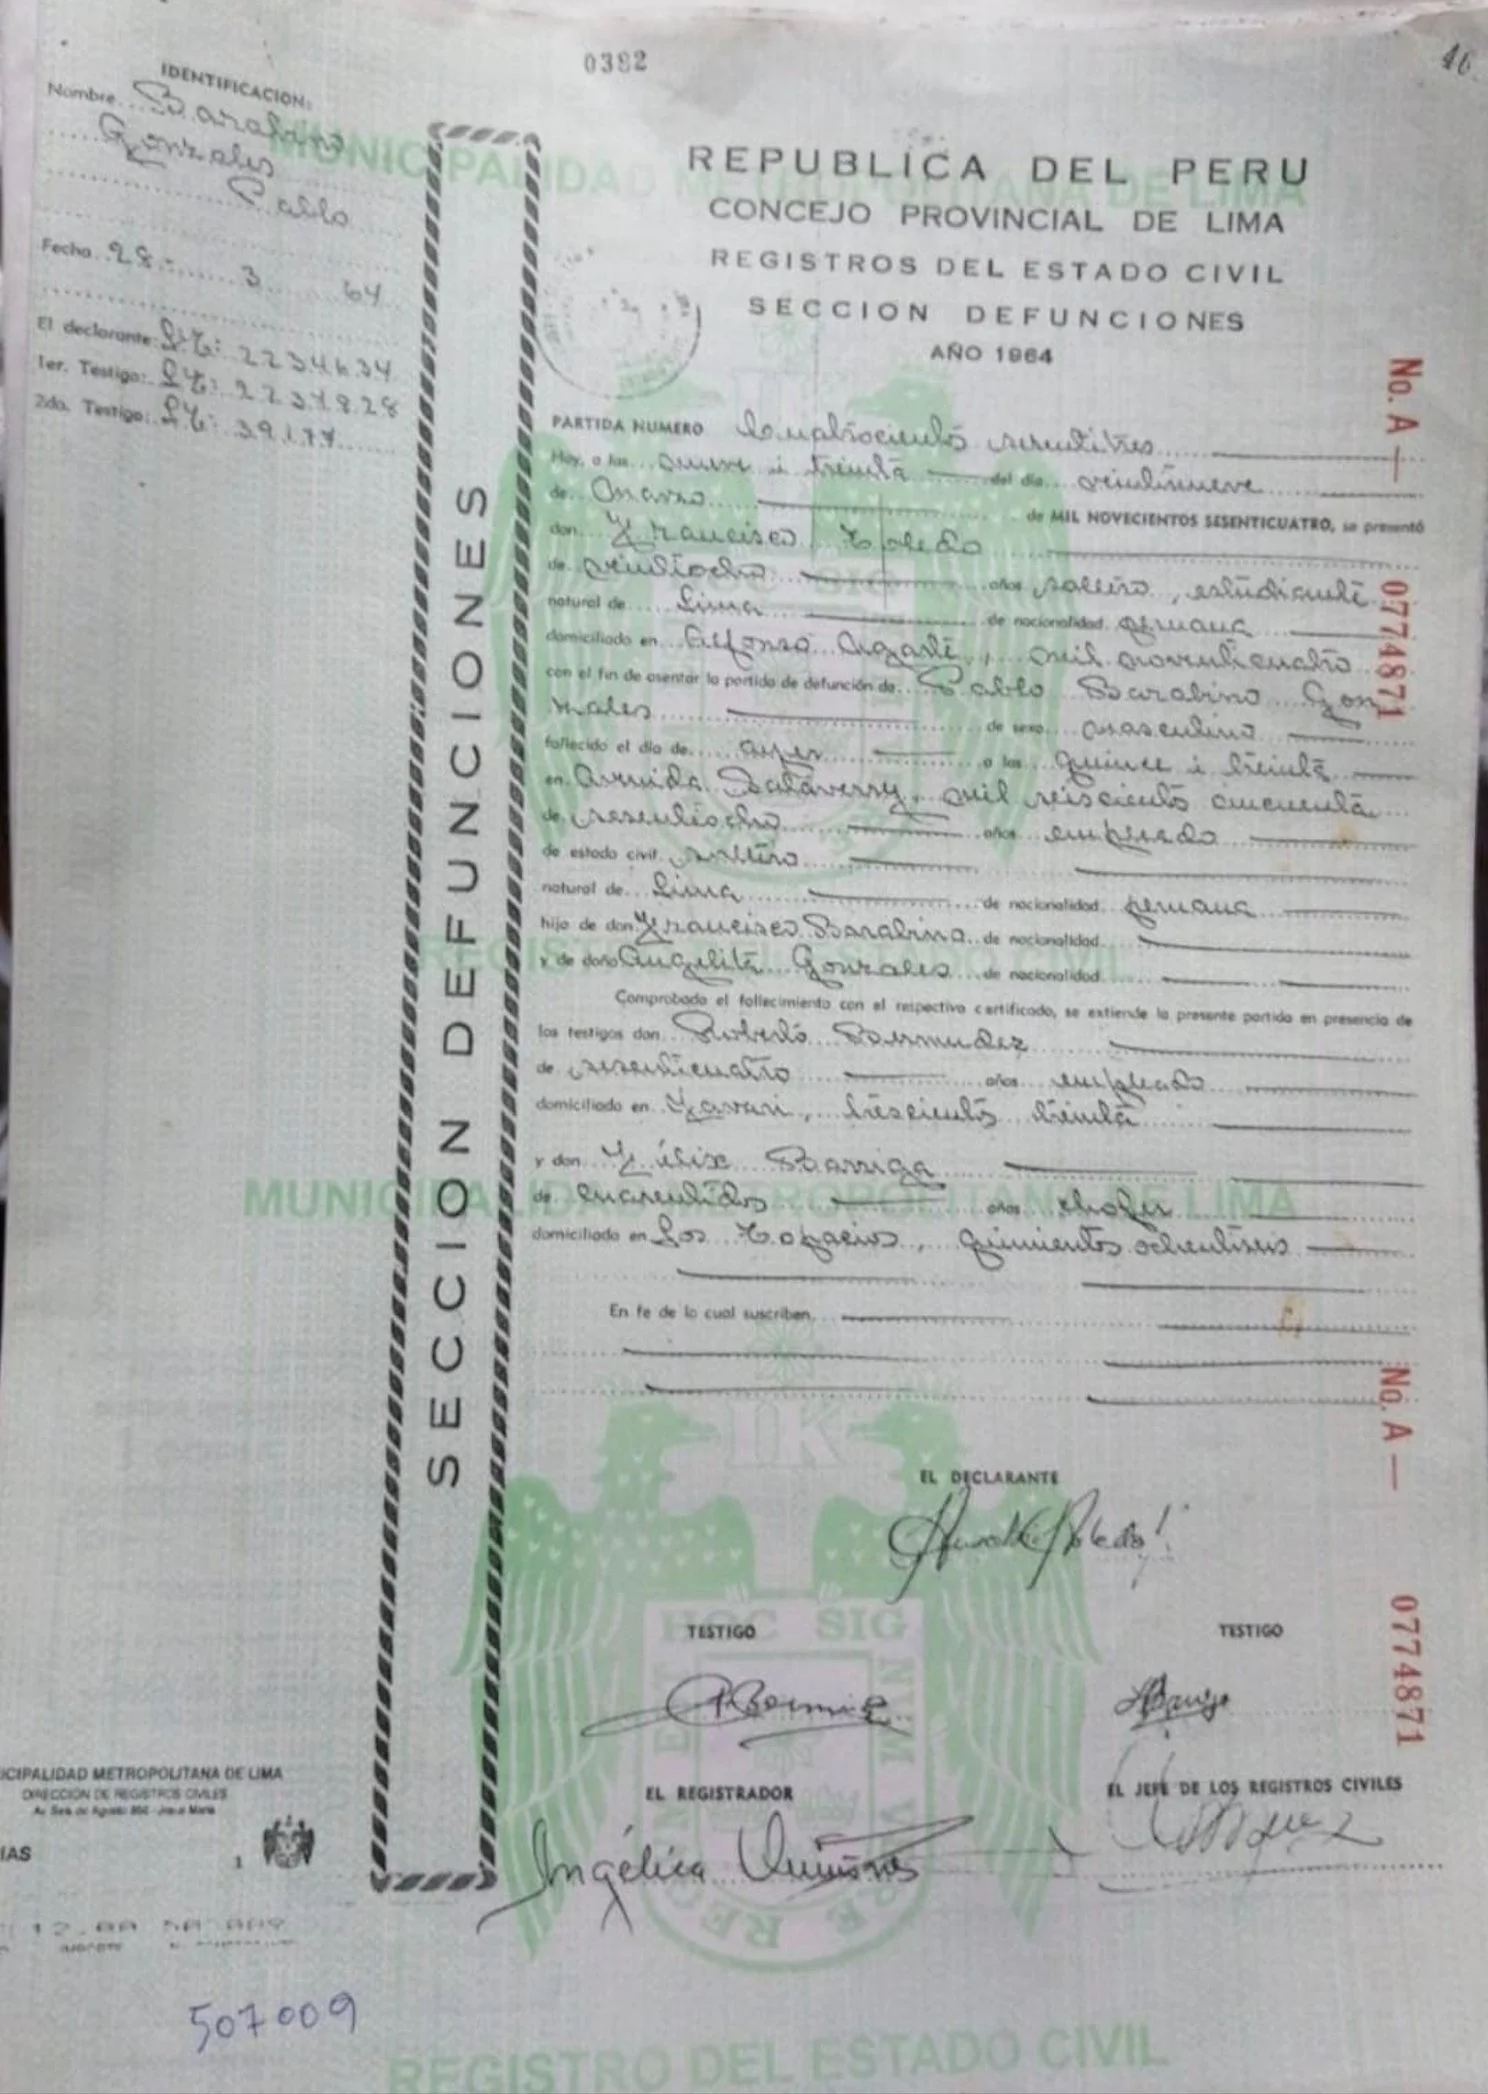 0382
16
IDENTIFICACION:
Nombre Barabino
Gonzales
Pablo
Fecha 28 3 64
El declarante: L.E: 2234634
1er. Testigo: L.E: 2237828
2do. Testigo: L.E: 39177
SECCION DEFUNCIONES
MUNICIPALIDAD METROPOLITANA DE LIMA
REPUBLICA DEL PERU
CONCEJO PROVINCIAL DE LIMA
REGISTROS DEL ESTADO CIVIL
SECCION DEFUNCIONES
AÑO 1964
No. A — 0774871
PARTIDA NUMERO
Hoy, a las nueve i treinta del día veintinueve
de Marzo de MIL NOVECIENTOS SESENTICUATRO, se presentó
don Francisco Toledo
de veintiocho años soltero, estudiante
natural de Lima de nacionalidad peruana
domiciliado en Alfonso Ugarte, mil noventicuatro
con el fin de asentar la partida de defunción de Pablo Barabino Gon
zales de sexo masculino
fallecido el día de ayer a las quince i treinta
en Avenida Salaverry, mil seiscientos cincuenta
de sesentiocho años empleado
de estado civil soltero
natural de Lima de nacionalidad peruana
hijo de don Francisco Barabino de nacionalidad
y de doña Angelita Gonzales de nacionalidad
Comprobado el fallecimiento con el respectivo certificado, se extiende la presente partida en presencia de
los testigos don Roberto Bermudez
de sesenticuatro años empleado
domiciliado en trescientos treinta
y don Félix Barriga
de cuarentidos años chofer
domiciliado en Los Topacios, quinientos ochentiseis
MUNICIPALIDAD METROPOLITANA DE LIMA
En fe de lo cual suscriben,
No. A — 0774871
EL DECLARANTE
Toledo
TESTIGO
TESTIGO
HOC SIG
EL REGISTRADOR
EL JEFE DE LOS REGISTROS CIVILES
Angélica Quiñones
CIPALIDAD METROPOLITANA DE LIMA
DIRECCION DE REGISTROS CIVILES
IAS
1
507009
REGISTRO DEL ESTADO CIVIL